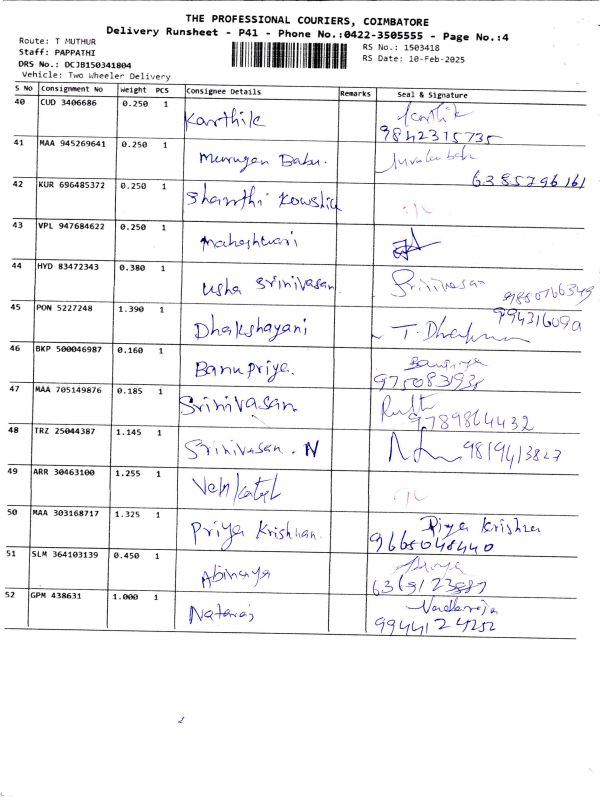 THE PROFESSIONAL COURIERS, COIMBATORE
Delivery Runsheet - P41 - Phone No.:0422-3505555 - Page No.:4
Route: T MUTHUR
RS No.: 1503418
Staff: PAPPATHI
RS Date: 10-Feb-2025
DRS No.: DCJB150341804
Vehicle: Two Wheeler Delivery
S No Consignment No Weight PCS Consignee Details Remarks Seal & Signature
40 CUD 3406686 0.250 1 Karthik Karthik
9842315735
41 MAA 945269641 0.250 1 Murugan Babu.
6385796161
42 KUR 696485372 0.250 1 Shanthi Kowshik
43 VPL 947684622 0.250 1 Maheshwari
44 HYD 83472343 0.380 1 Usha Srinivasan Srinivasan
45 PON 5227248 1.390 1 Dhakshayani T. Dhakshana
46 BKP 500046987 0.160 1 Banupriya. Banupriya
47 MAA 705149876 0.185 1 Srinivasan
9789864432
48 TRZ 25044387 1.145 1 Srinivasan. N 9819413827
49 ARR 30463100 1.255 1 Venkatesh
50 MAA 303168717 1.325 1 Priya Krishnan. Priya Krishna
9665048440
51 SLM 364103139 0.450 1 Abinaya
6369123887
52 GPM 438631 1.000 1 Nataraj Nadaraja
9944124252